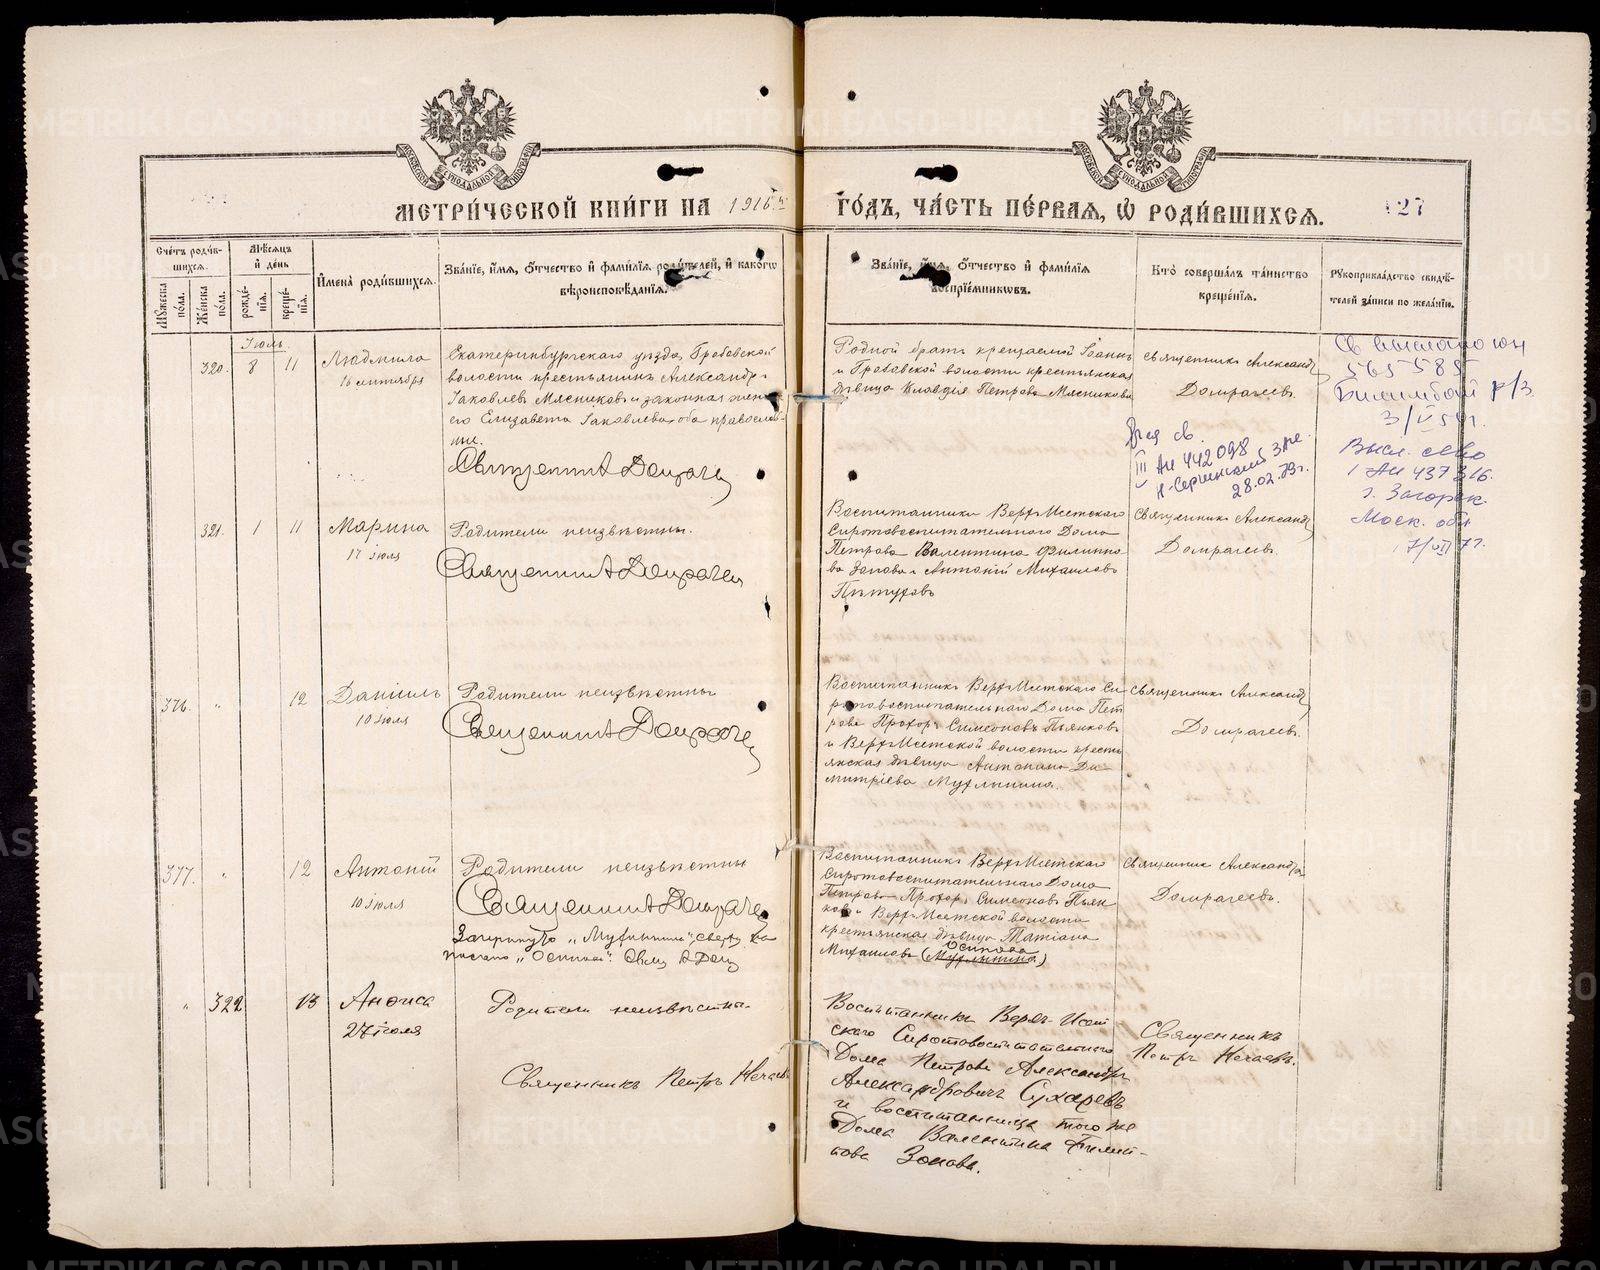 МЕТРИ́ЧЕСКОЙ КНИ́ГИ НА 1916 й
ГО́ДЪ, ЧА́СТЬ ПЕ́РВАЯ, Ѡ РОДИ́ВШИХСЯ.
127
Сче́тъ роди́в-
шихся.
Му́жеска по́ла.
Же́нска по́ла.
Мѣ́сяцъ
и҆ де́нь
рожде́-
нїя.
креще́-
нїя.
И҆мена̀ роди́вшихся.
Зва́нїе, и҆́мя, ѻ҆́тчество и҆ фами́лїя роди́телей, и҆ како́гѡ
вѣроисповѣ́данїя.
Зва́нїе, и҆́мя, ѻ҆́тчество и҆ фами́лїя
воспрїе́мниковъ.
Кто̀ соверша́лъ та́инство
креще́нїя.
Рꙋкоприкла́дство свидѣ́-
телей за́писи по жела́нїю.
Іюль.
320.
8
11
Людмила
16 сентября
Екатеринбургскаго уѣзда, Гробовской
волости крестьянинъ Александръ
Іаковлевъ Мясниковъ и законная жена
его Елизавета Іаковлева, оба православ-
ные.
Священникъ А Домрачев
Родной братъ крещаемой Іоаннъ
и Гробовской волости крестьянская
дѣвица Клавдія Петрова Мясникова
Священникъ Александръ
Домрачевъ.
565585
Билимбай р/з
3/V 54г.
св.
III АИ 442098
Н-Сергинский ЗАГС
28.02.79г.
Высл. св-во
I АИ 437316.
г. Загорск.
Моск. обл
7/VII 77.
321.
1
11
Марина
17 іюля
Родители неизвѣстны.
Священникъ А Домрачев
Воспитанники Верхъ-Исетскаго
Сиротовоспитательнаго Дома
Петрова Валентина Филиппо-
ва Зонова и Антоній Михаиловъ
Пѣтуховъ
Священникъ Александръ
Домрачевъ.
376.
"
12
Даніилъ
10 іюля
Родители неизвѣстны
Священникъ А Домрачев
Воспитанникъ Верхъ-Исетскаго Си-
ротовоспитательнаго Дома Пет-
рова Прохоръ Симеоновъ Пьянковъ
и Верхъ-Исетской волости кресть-
янская дѣвица Антонина Ди-
митріева Мухлынина.
Священникъ Александръ
Домрачевъ.
377.
"
12
Антоній
10 іюля
Родители неизвѣстны
Священникъ А Домрачев
Зачеркнуто „Мухлынина", сверху на
писано „Осипова". Свящ А Домр
Воспитанникъ Верхъ-Исетскаго
Сиротовоспитательнаго Дома
Петрова Прохоръ Симеоновъ Пьян-
ковъ и Верхъ-Исетской волости
крестьянская дѣвица Татіана
Осипова
Михаилова (Мухлынина)
Священникъ Александръ
Домрачевъ.
"
322
13
Анѳиса
27 іюля
Родители неизвѣстны.
Священникъ Петръ Нечаевъ
Воспитанникъ Верхъ-Исет-
скаго Сиротовоспитательнаго
Дома Петрова Александръ
Александровичъ Сухаревъ
и воспитанница того же
Дома Валентина Филип-
пова Зонова.
Священникъ
Петръ Нечаевъ.
METRIKI.GASO-URAL.RU